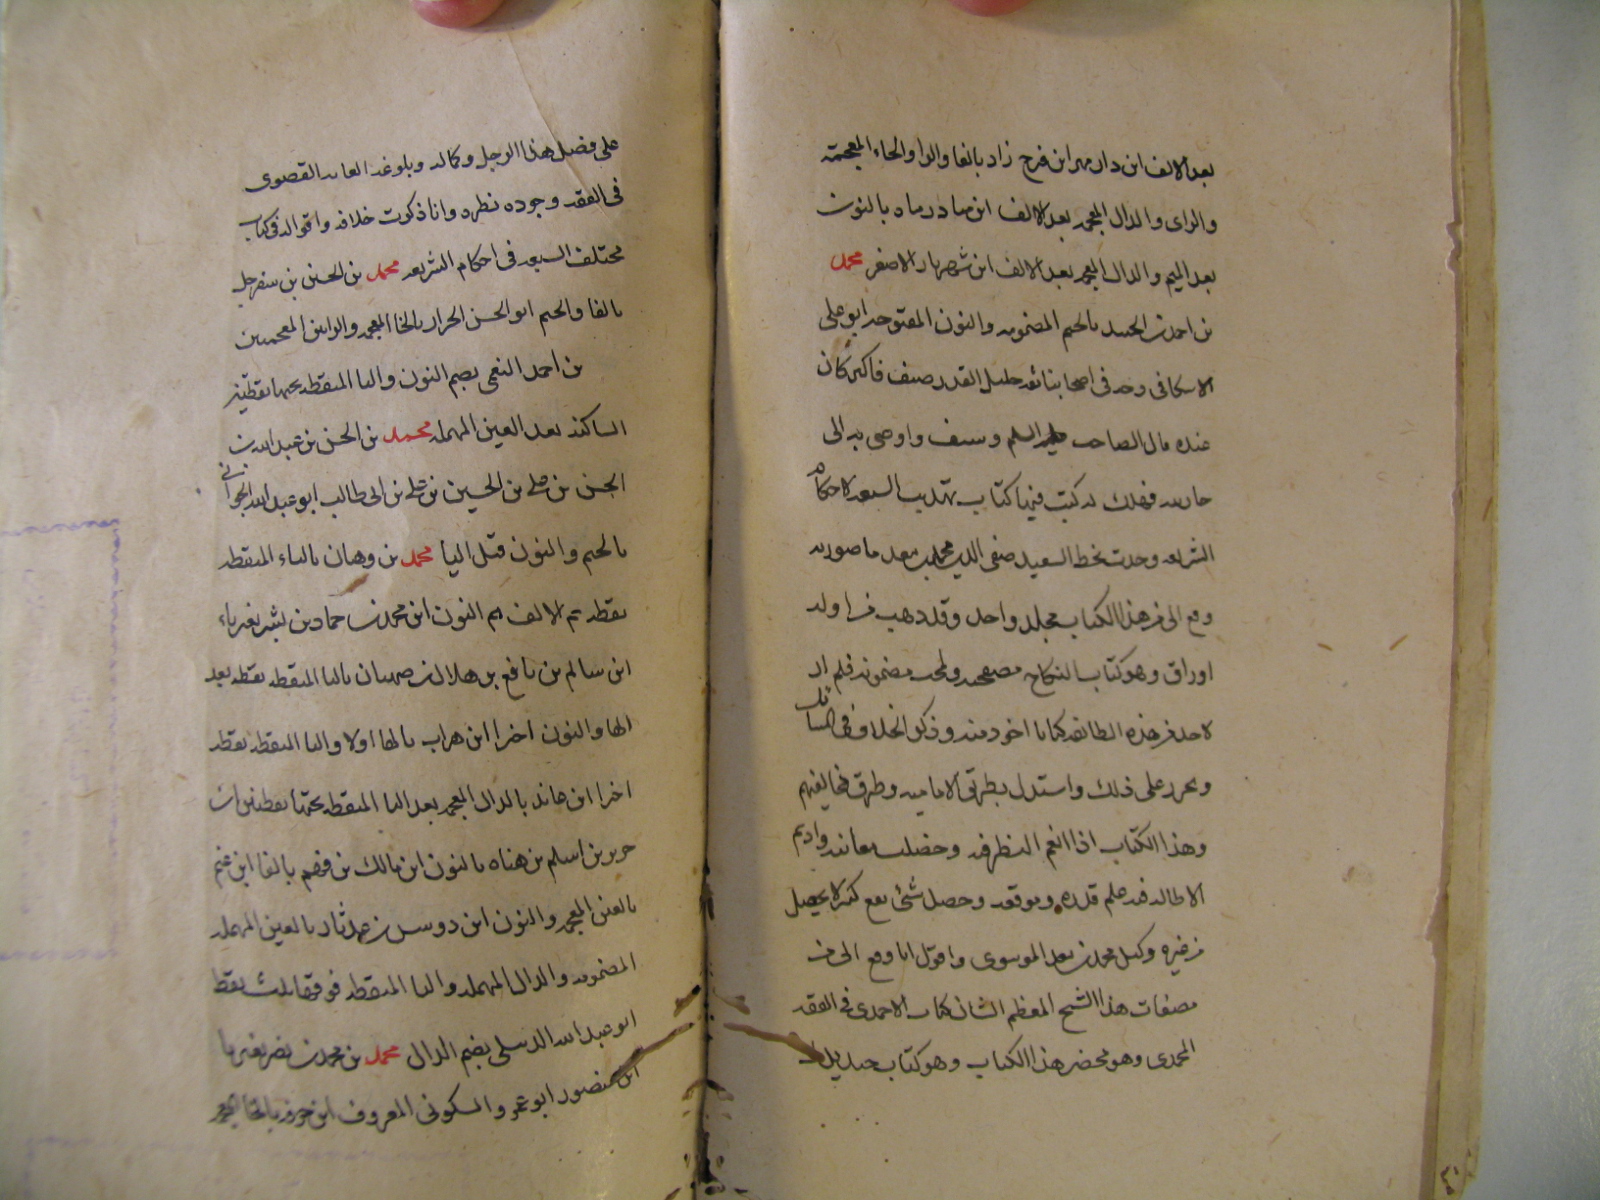 بعد الالف ابن دارمهر ابن فرح زاد بالفا والرا والحاء المعجمة
والزاى والدال المعجمه بعد الالف ابن مادرماه بالنون
بعد الميم والدال المعجمه بعد الالف ابن شهريار الاصغر محمد
بن احمد بن الجنيد بالجيم المضمومه والنون المفتوحه ابو على
الاسكافى وجه فى اصحابنا ثقه جليل القدر صنف فاكثر كان
عنده مال الصاحب عليه السلم وسيف واوصى به الى
جاريته فهلك له كتب فيها كتاب تهذيب الشيعه لاحكام
الشريعه وجدت بخط السعيد صفى الدين محمد بن معد ما صورته
وقع الى من هذا الكتاب مجلد واحد وقد ذهب من اوله
اوراق وهو كتاب النكاح فلم ار
لاحد من هذه الطائفه كتابا اجود منه وذكر الخلاف فى المسائل
على ذلك واستدل بطرق الاماميه وطرق مخالفيهم
وهذا الكتاب اذا انعم النظر فيه وحصلت معانيه واديم
الاطاله فيه علم قدره وموقعه وحصل شئ نفع كثير لا يحصل
من غيره وكتب محمد بن معد الموسوى واقول انا وقع الى من
مصنفات هذا الشيخ المعظم الشان كتاب الاحمدى فى الفقه
المحمدى وهو مختصر هذا الكتاب وهو كتاب جيد يدل
على فضل هذا الرجل وكماله وبلوغه الغايه القصوى
فى الفقه وجوده نظره وانا ذكرت خلافه واقواله فى كتاب
مختلف الشيعه فى احكام الشريعه محمد بن الحسن بن سفرجل
بالفا والجيم ابو الحسن الخزاز بالخا المعجمه والزاين المعجمتين
بن احمد النعيمى بضم النون واليا المنقطه تحتها نقطتين
الساكنه بعد العين المهمله محمد بن الحسن بن عبد الله بن
الحسن بن على بن الحسين بن على بن ابى طالب ابو عبد الله الجوانى
بالجيم والنون قبل اليا محمد بن وهبان بالباء المنقطه
نقطه ثم الالف ثم النون ابن محمد بن حماد بن بشر بغير ياء
ابن سالم بن نافع بن هلال بن صهبان بالبا المنقطه نقطه بعد
الها والنون اخرا ابن هراب بالها اولا والبا المنقطه نقطه
اخرا ابن عائذ بالذال المعجمه بعد اليا المنقطه تحتها نقطتين ابن
خزيز بن اسلم بن هناه بالنون ابن مالك بن فهم بالفا ابن غنم
بالغين المعجمه والنون ابن دوس بن عدثان بالعين المهمله
المضمومه والدال المهمله والثا المنقطه فوقها ثلث نقط
ابو عبد الله الدبيلى بضم الدال محمد بن محمد بن نضر بغير يا
ابن منصور ابو عمرو السكونى المعروف ابن خرقه بالخا المعجمه